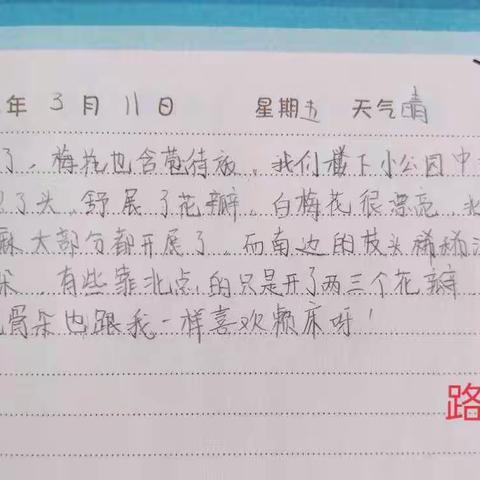 年 3月 11日 星期五 天气晴
了,梅花也含苞待放,我们楼下小公园中
了头,舒展了花瓣,白梅花很漂亮,北
麻大部分都开展了,而南边的枝头稀稀
朵,有些靠北点的只是开了两三个花瓣
骨朵也跟我一样喜欢赖床呀!
路